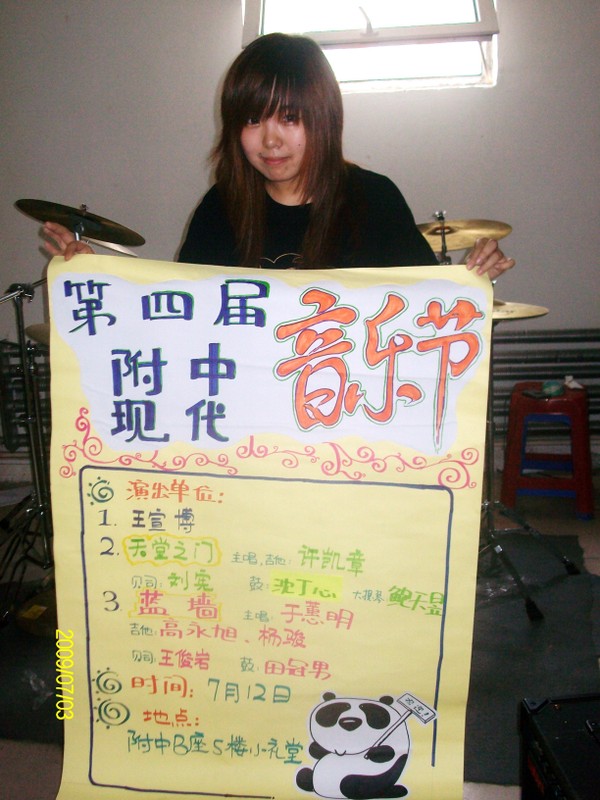 第四届
附中
现代
音乐节
演出单位:
1. 王宣博
2. 天堂之门 主唱,吉他: 许凯章
贝司: 刘宪 鼓: 沈丁心 大提琴 鲍禾昙
3. 蓝墙 主唱: 于蕙明
吉他: 高永旭、杨骏
贝司: 王俊岩 鼓: 田冠男
时间: 7月12日
地点:
附中B座5楼小礼堂
2009/07/03